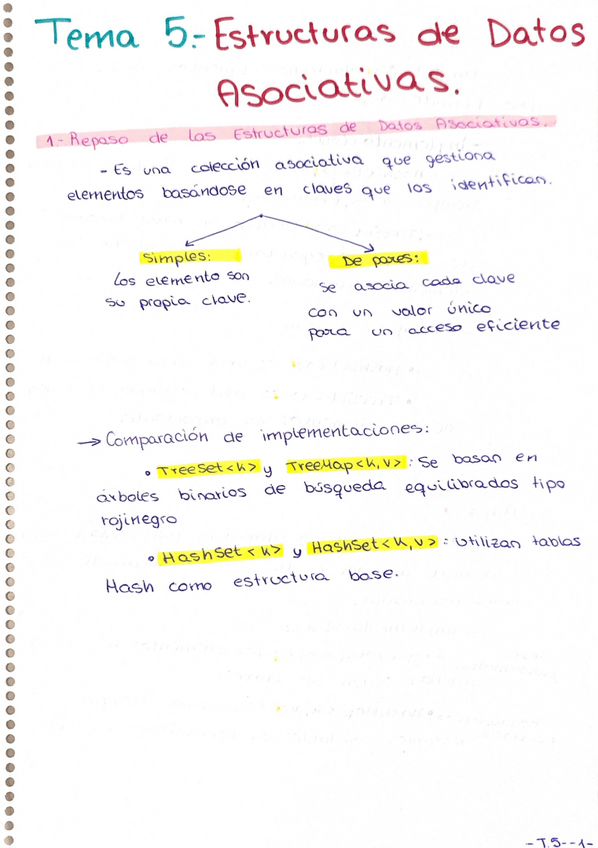 Tema 5.- Estructuras de Datos
Asociativas.
1.- Repaso de las Estructuras de Datos Asociativas.
- Es una colección asociativa que gestiona
elementos basándose en claves que los identifican.
Simples:
Los elemento son
su propia clave.
De pares:
se asocia cada clave
con un valor único
para un acceso eficiente
→ Comparación de implementaciones:
• TreeSet<k> y TreeMap<k,v>: Se basan en
árboles binarios de búsqueda equilibrados tipo
rojinegro
• HashSet<k> y HashSet<k,v>: Utilizan tablas
Hash como estructura base.
- T.5 - -1-